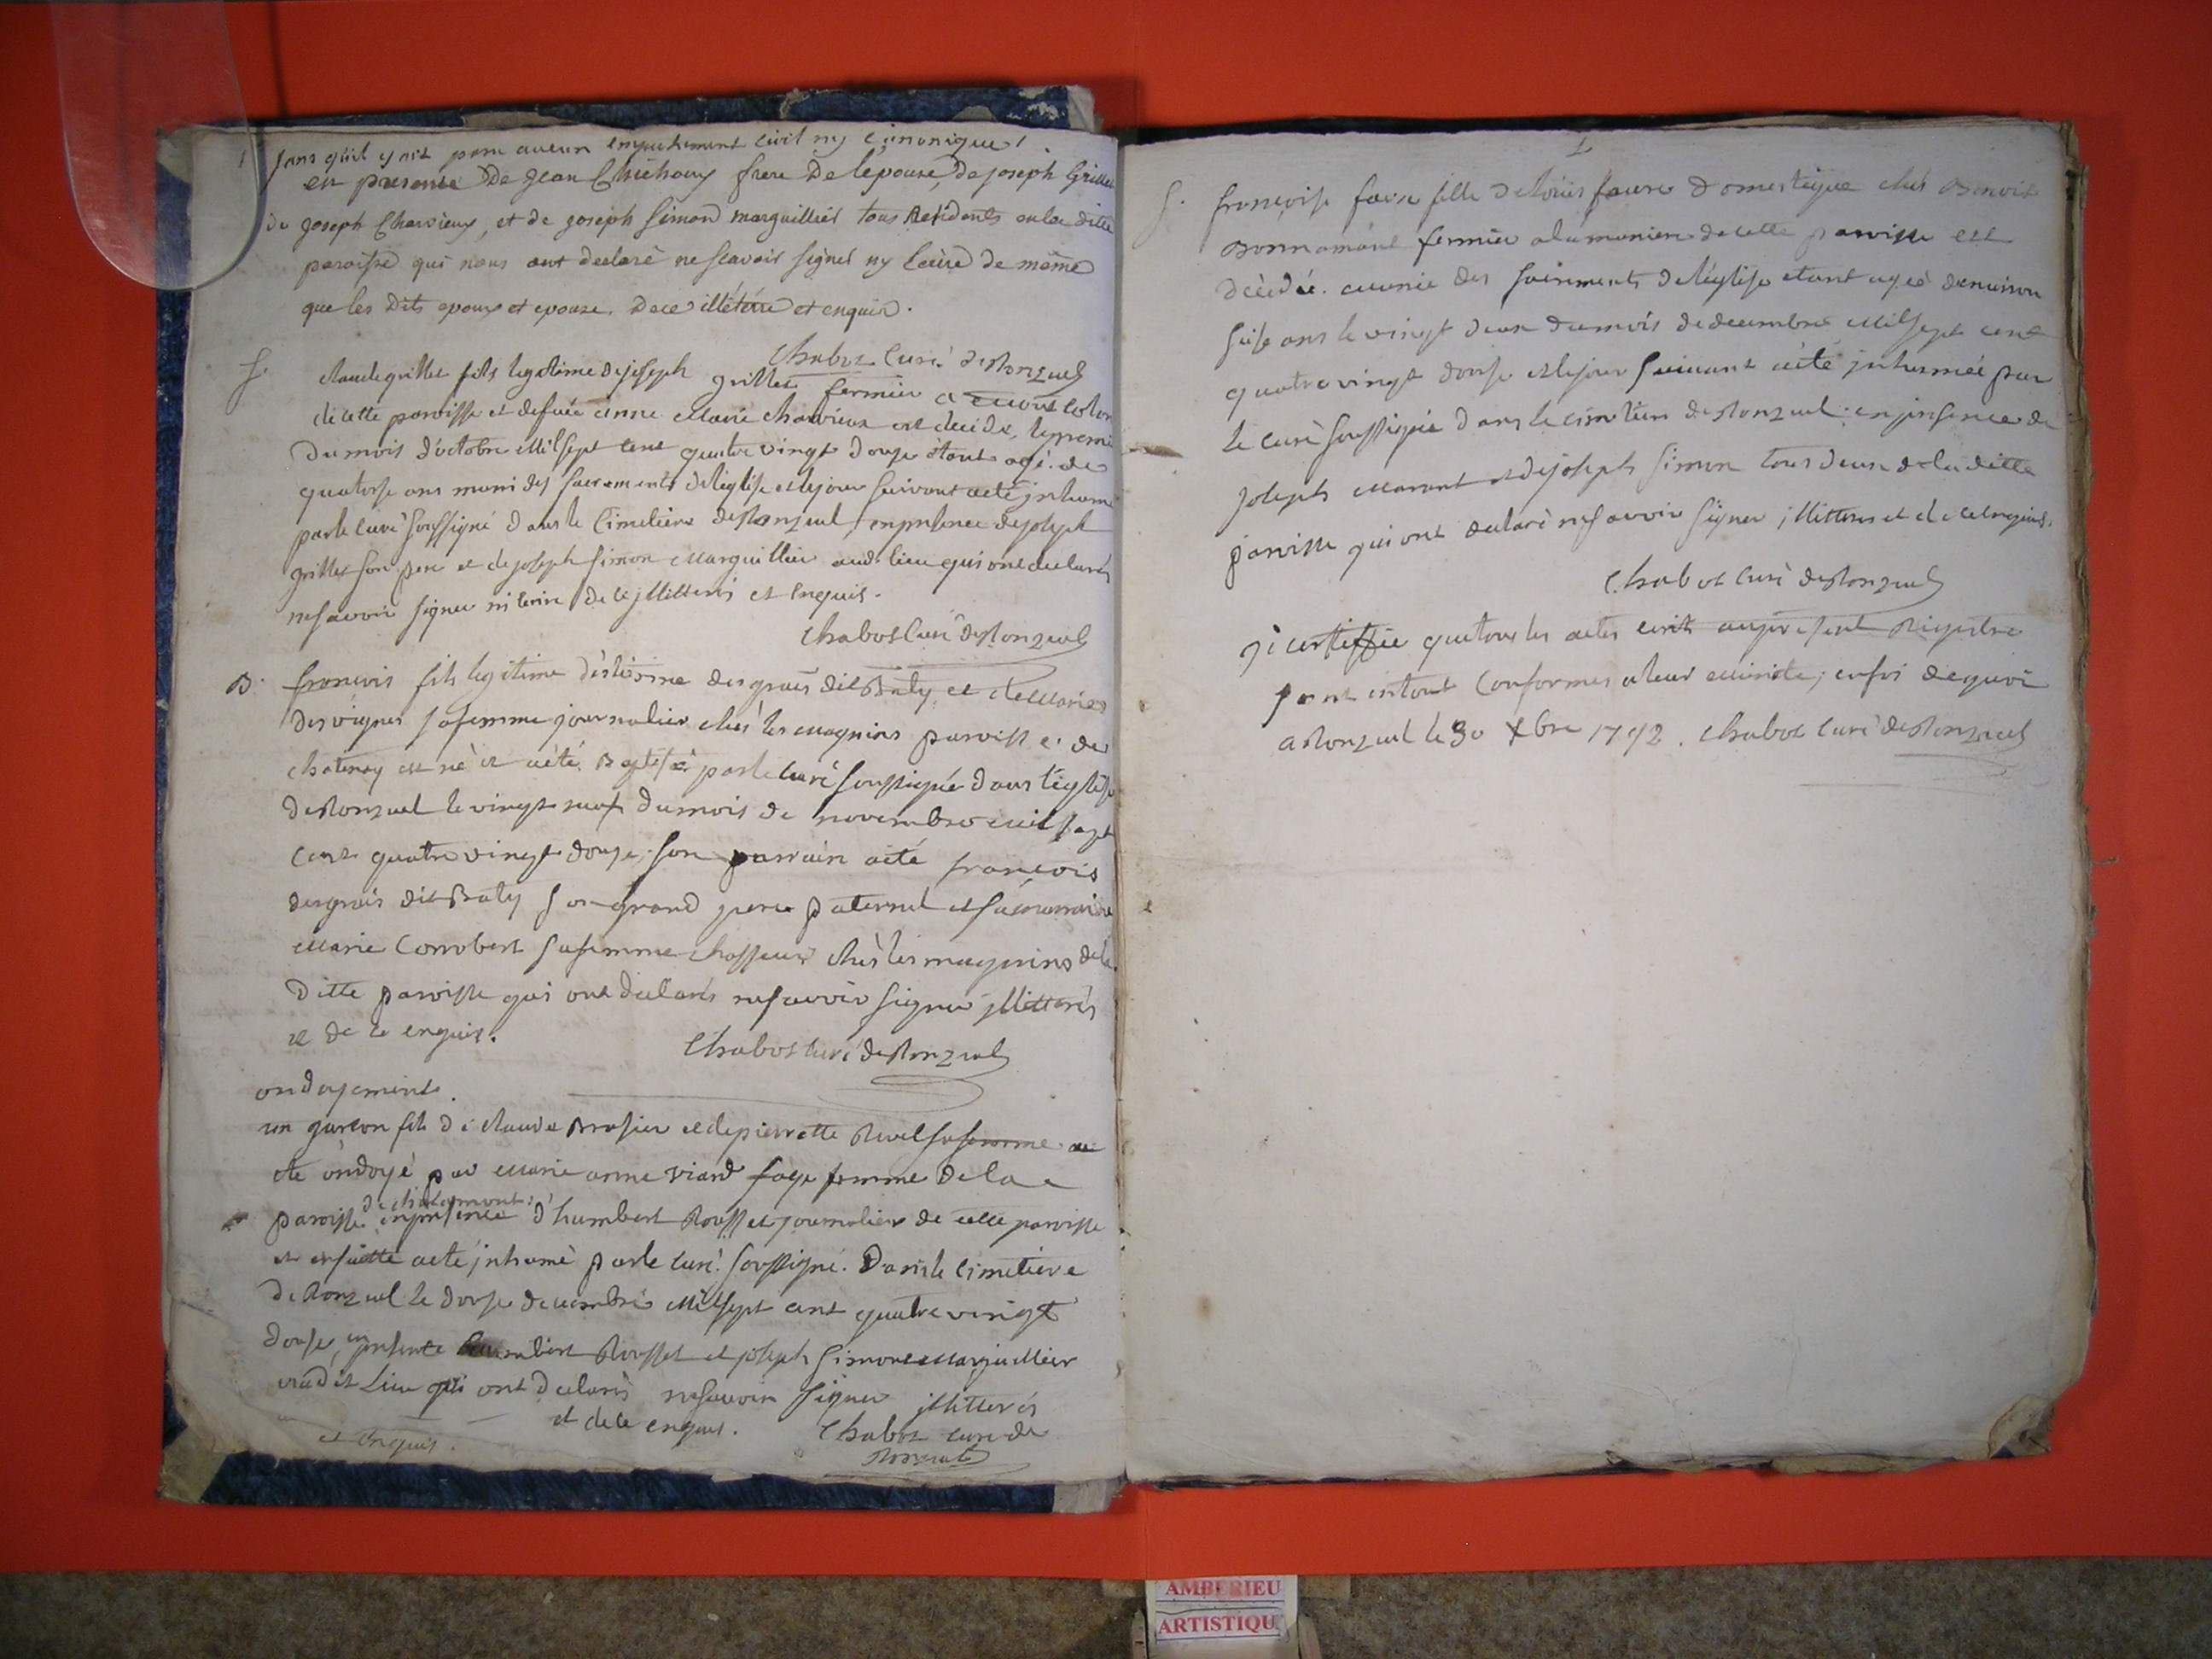 sans qu'il y ait paru aucun empechement civil ny canonique
en presence De Jean frere De lepouse, De joseph Grillet
De joseph Charvieux, et de joseph simon marguillier tous Residants en la ditte
paroisse qui nous ont declaré ne scavoir signer ny Ecrire De même
que les Dits epoux et epouse. De ce illétéré et enquis.
Chabot Curé de Ronzuel
S. claude grillet fils legitime de joseph grillet fermier a
de cette paroisse et de fuée anne Marie charvieux est decidé, le premie
Du mois d'octobre Mil sept cent quatre vingt douze étant agé de
quatorse ans muni des sacrements de l'église et le jour suivant aeté jnhumé
par le curé soussigné dans le Cimetiere de Ronzuel, en presence de joseph
grillet son pere et de joseph simon Marguillier aud. lieu qui ont declarés
ne savoir signer ni ecrire de ce jllitterés et Enquis.
Chabot Curé de Ronzuel
B. françois fils legitime d'étienne desgrais dit Baty, et de Marie
desvignes sa femme journalier chés les magnins paroisse de
chatenay est né et aété Baptisé par le curé soussigné dans l'église
de Ronzuel le vingt neuf du mois de novembre mil sept
cent quatre vingt douze, son parrain aété françois
desgrais dit Baty son grand pere paternel et sa marraine
Marie Corrobert sa femme chés les magnins de la
Ditte paroisse qui ont declarés ne savoir signer jllitterés
et de ce enquis.
Chabot curé de Ronzuel
ondoyement.
un garçon fils de claude Brasier et de pierrette Revel sa femme a
eté ondoyé par Marie anne viard sage femme de la
de chalamont:
paroisse en presence d'humbert Rousset journalier de cette paroisse
et ensuitte aeté jnhumé par le curé soussigné. Dans le Cimetiere
de Ronzuel le douse decembre Mil sept cent quatre vingt
douse, en presence humbert Rousset et joseph simon Marguillier
audit Lieu qui ont declarés ne savoir signer jllitterés
et de ce enquis. Chabot curé de
Ronzuel
et Enquis.
S. françoise favre fille de loüis favre domestique chés Benoit
Bonnamour fermier a la de cette paroisse est
décédée. munie des sacrements de l'église etant agée d'environ
seise ans le vingt deux du mois de decembre Mil sept cent
quatre vingt douse et le jour suivant aeté jnhumée par
le curé soussigné dans le cimetiere de Ronzuel: en presence de
joseph Marant et de joseph simon tous deux de la ditte
paroisse qui ont declaré ne savoir signer jllitterés et de ce enquis.
Chabot curé de Ronzuel
je certiffie que tous les actes ecrits au present Registre
sont en tout conformes a leur Minute; en foi de quoi
a Ronzuel le 30 Xbre 1792. Chabot curé de Ronzuel
AMBERIEU
ARTISTIQU